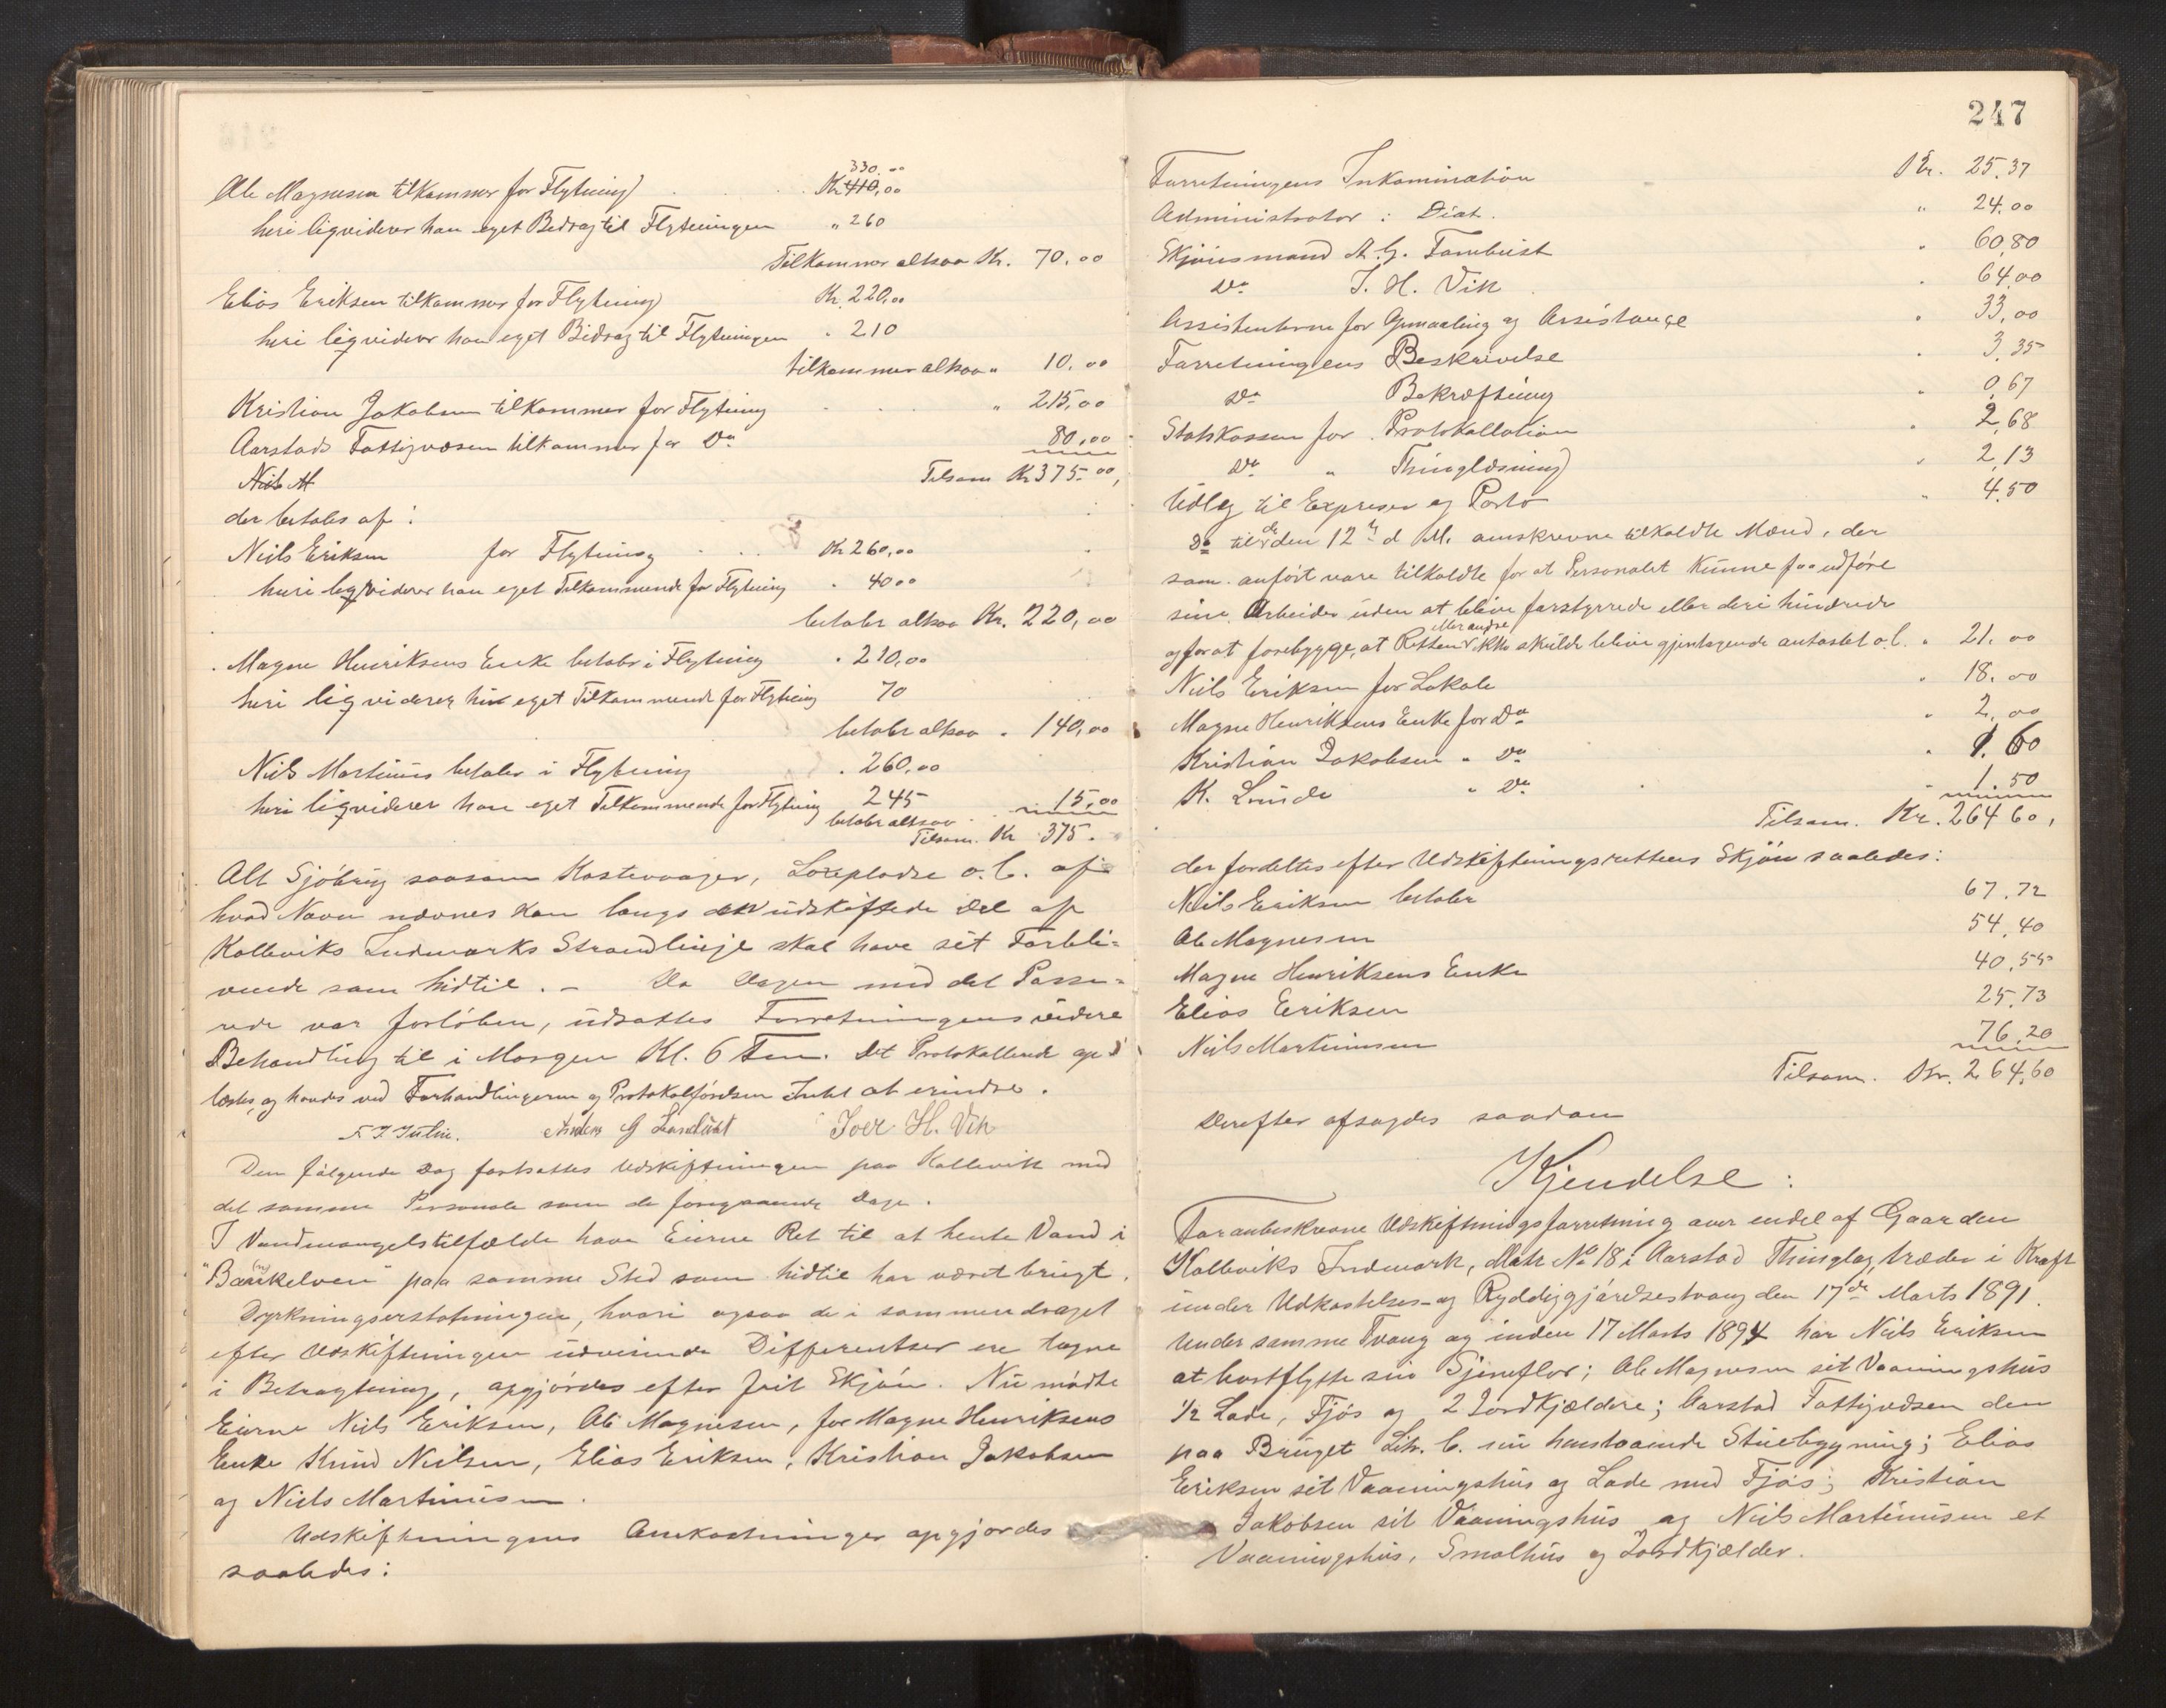 Ole Magnesen tilkommer for Flytning . . Kr 410,00 330.00
heri ligviderer han eget Bedrag til Flytningen " 260
Tilkommer altsaa Kr. 70.00
Elias Eriksen tilkommer for Flytning Kr. 220,00
heri ligviderer han eget Bidrag til Flytningen " 210
tilkommer altsaa " 10.00
Kristian Jakobsen tilkommer for Flytning . . . " 215,00
Aarstads Fattigvæsen tilkommer for Do 80,00
Niels M Tilsam Kr 375.00,
der betales af:
Niels Eriksen for Flytning . . . Kr 260,00
heri ligviderer han eget Tilkommende for Flytning " 40 00
betaler altsaa Kr. 220,00
Magne Henriksens Enke betaler i Flytning " 210,00
heri ligviderer hun eget Tilkommende for Flytning 70
betaler altsaa " 140,00
Niels Martinus betaler i Flytning " 260,00
heri ligviderer han eget Tilkommende for Flytning 245 15,00
betaler altsaa
Tilsam. Kr 375.
Alt Sjöbrug saasom Kastevaager, Lorepladse o. l. af
hvad Navn nævnes kan langs den udskiftede Del af
Kalleviks Indmarks Strandlinje skal have sit Forbli-
vende som hidtil. – Da Dagen med det Passe-
rede var forlöben, udsattes Forretningens videre
Behandling til i Morgen Kl. 6 Fm. Det Protokollerede op-
læstes, og havdes ved Forhandlingerne og Protokolförelsen Intet at erindre.
Anders G Iver H. Vik
Den fölgende Dag fortsattes Udskiftningen paa Kallevik med
det samme Personale som de foregaaende Dage.
I Vandmangelstilfælde have Eierne Ret til at hente Vand i
"Bænkelven" paa samme Sted som hidtil har været brugt.
Dyrkningserstatningen, hvori ogsaa de i sammendraget
efter Udskiftningen udvisende Differentser ere tagne
i Betragtning, opgjördes efter frit Skjön. Nu mödte
Eierne Niels Eriksen, Ole Magnesen, for Magne Henriksens
Enke Knud Nielsen, Elias Eriksen, Kristian Jakobsen
og Niels Martinusen.
Udskiftningens Omkostninger opgjordes
saaledes:
247
Forretningens Inkamination Kr. 25.37
Administrator: Diæt. " 24.00
Skjönsmand A. G. " 60,80
Do I. H. Vik . " 64,00
Assistenterne for Opmaaling og Assistançe " 33,00
Forretningens Beskrivelse " 3,35
Do Bekræftning " 0,67
Statskassen for Protokollation " 2,68
Do " Thinglæsning " 2,13
Udlæg til Expresser og Porto " 4,50
Do til de den 12te d M. omskrevne tilkaldte Mænd, der
som anfört vare tilkaldte for at Personalet kunne faa udföre
sine Arbeider uden at blive forstyrrede eller deri hindrede
og for at forebygge, at Retten eller andre skulde blive gjentagende antastet o. l. " 21.00
Niels Eriksen for Lokale " 18.00
Magne Henriksens Enke for Do " 2,00
Kristian Jakobsen " Do " 1.60
K. Lunde " Do " 1.50
Tilsam. Kr. 264 60,
der fordeltes efter Udskiftningsrettens Skjön saaledes:
Niels Eriksen betaler 67.72
Ole Magnesen 54,40
Magne Henriksens Enke 40,55
Elias Eriksen 25,73
Niels Martinusen 76,20
Tilsam. Kr. 264,60
Derefter afsagdes saadan
Kjendelse:
Foranbeskrevne Udskiftningsforretning over endel af Gaarden
Kalleviks Indmark, Matr No 18 i Aarstad Thinglag, træder i Kraft
under Udkastelses- og Ryddiggjörelsestvang den 17de Marts 1891.
Under samme Tvang og inden 17 Marts 1894 har Niels Eriksen
at bortflytte sin ; Ole Magnesen sit Vaaningshus
1/2 Lade, Fjös og 2 Jordkjældere; Aarstad Fattigvæsen den
paa Bruget Litr. b. nu henstaaende Stuebygning; Elias
Eriksen sit Vaaningshus og Lade med Fjös; Kristian
Jakobsen sit Vaaningshus og Niels Martinusen et
Vaaningshus, Smalhus og Jordkjælder.